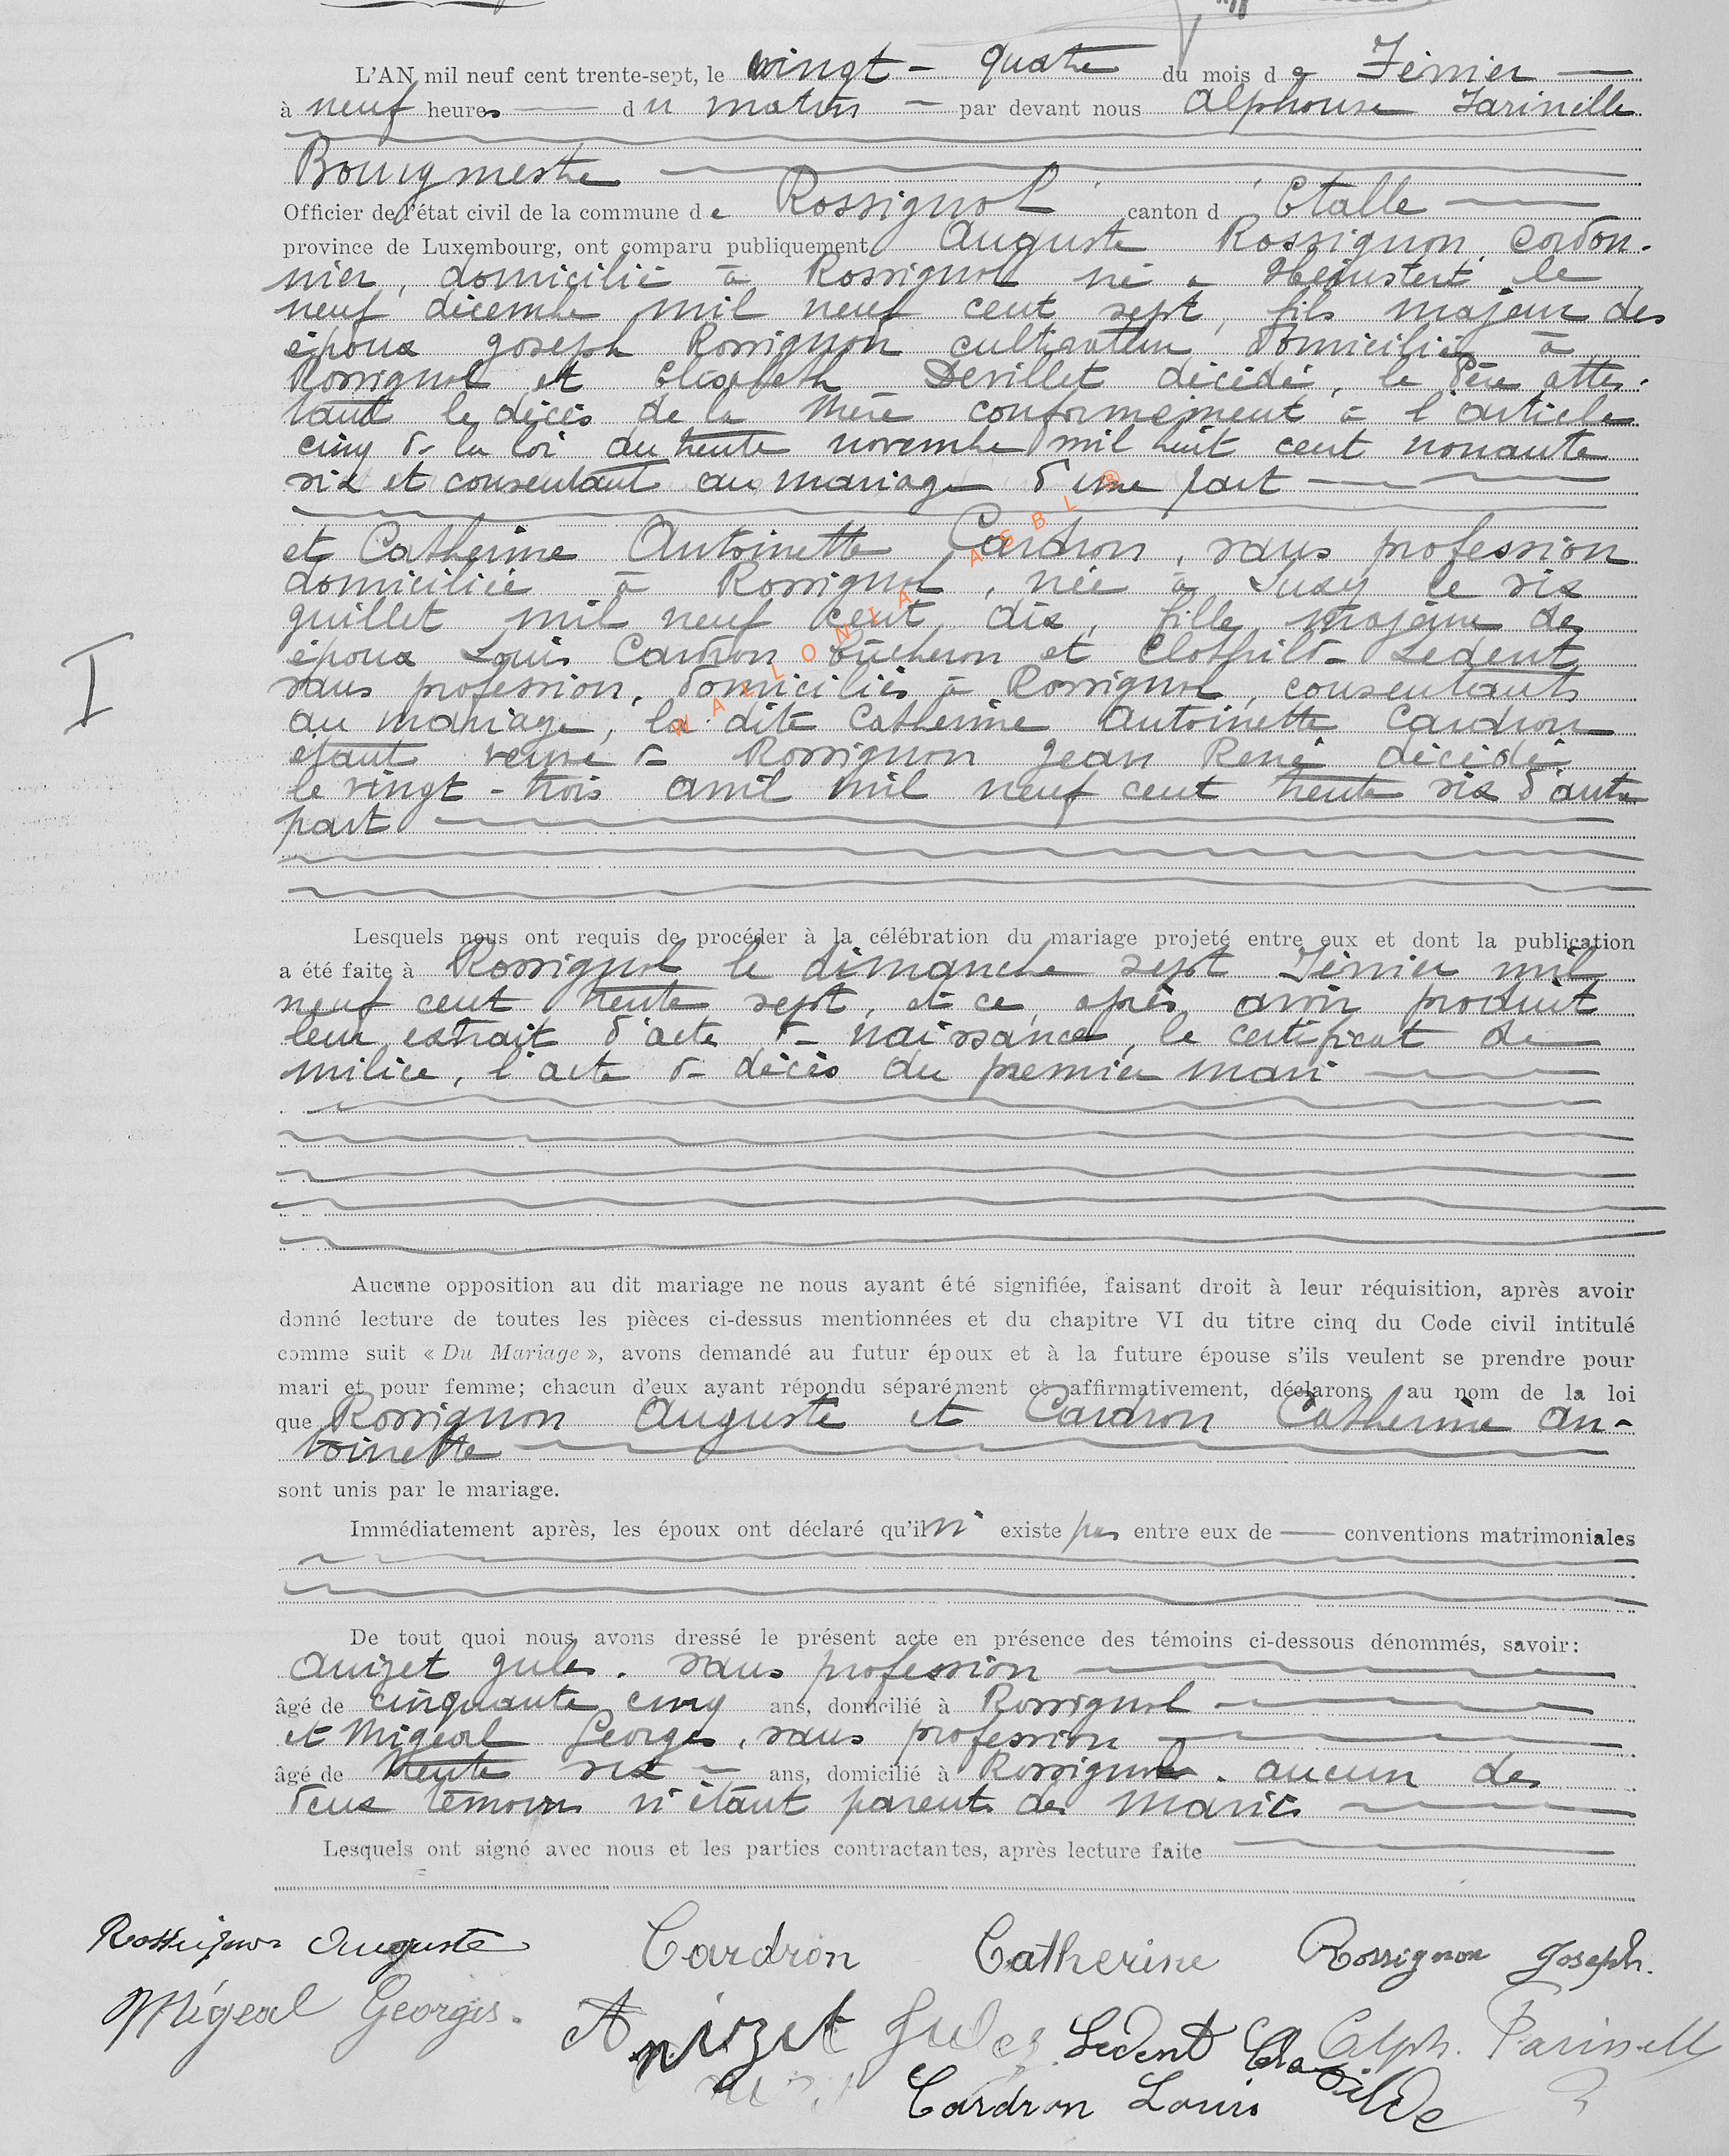 L'AN mil neuf cent trente-sept, le vingt - quatre du mois de Février
à neuf heures du matin par devant nous Alphonse Farinelle
Bourgmestre
Officier de l'état civil de la commune de Rossignol canton d' Etalle
province de Luxembourg, ont comparu publiquement Auguste Rossignon, cordon-
nier, domicilié à Rossignol né à le
neuf décembre mil neuf cent sept, fils majeur des
époux Joseph Rossignon cultivateur domicilié à
Rossignol et Elisabeth Devillet décédé, le Père attes-
tant le décès de la mère conformément à l'article
cinq de la loi du trente novembre mil huit cent nonante
six et consentant au mariage d'une part
et Catherine Antoinette Cardron, sans profession
domiciliée à Rossignol, née à Suxy le six
juillet mil neuf cent dix, fille majeure des
époux Louis Cardron bûcheron et Clothilde Ledent
sans profession, domiciliés à Rossignol, consentants
au mariage, la dite Catherine Antoinette Cardron
I
étant veuve de Rossignon Jean René décédé
le vingt-trois avril mil neuf cent trente six d'autre
part
WALLONIA ASBL ®
Lesquels nous ont requis de procéder à la célébration du mariage projeté entre eux et dont la publication
a été faite à Rossignol le dimanche sept Février mil
neuf cent trente sept, et ce, après avoir produit
leur extrait d'acte de naissance, le certificat de
milice, l'acte de décès du premier mari
Aucune opposition au dit mariage ne nous ayant été signifiée, faisant droit à leur réquisition, après avoir
donné lecture de toutes les pièces ci-dessus mentionnées et du chapitre VI du titre cinq du Code civil intitulé
comme suit « Du Mariage », avons demandé au futur époux et à la future épouse s'ils veulent se prendre pour
mari et pour femme; chacun d'eux ayant répondu séparément et affirmativement, déclarons au nom de la loi
que Rossignon Auguste et Cardron Catherine An-
toinette
sont unis par le mariage.
Immédiatement après, les époux ont déclaré qu'il n' existe pas entre eux de conventions matrimoniales
De tout quoi nous avons dressé le présent acte en présence des témoins ci-dessous dénommés, savoir:
Anizet Jules. sans profession
âgé de cinquante cinq ans, domicilié à Rossignol
et Migeal Georges, sans profession
âgé de trente six ans, domicilié à Rossignol. aucun des
deux témoins n'étant parents des mariés
Lesquels ont signé avec nous et les parties contractantes, après lecture faite
Rossignon Auguste Cardron Catherine Rossignon Joseph.
Migeal Georges. Anizet Jules Ledent Clotilde Alph. Farinelle
Cardron Louis